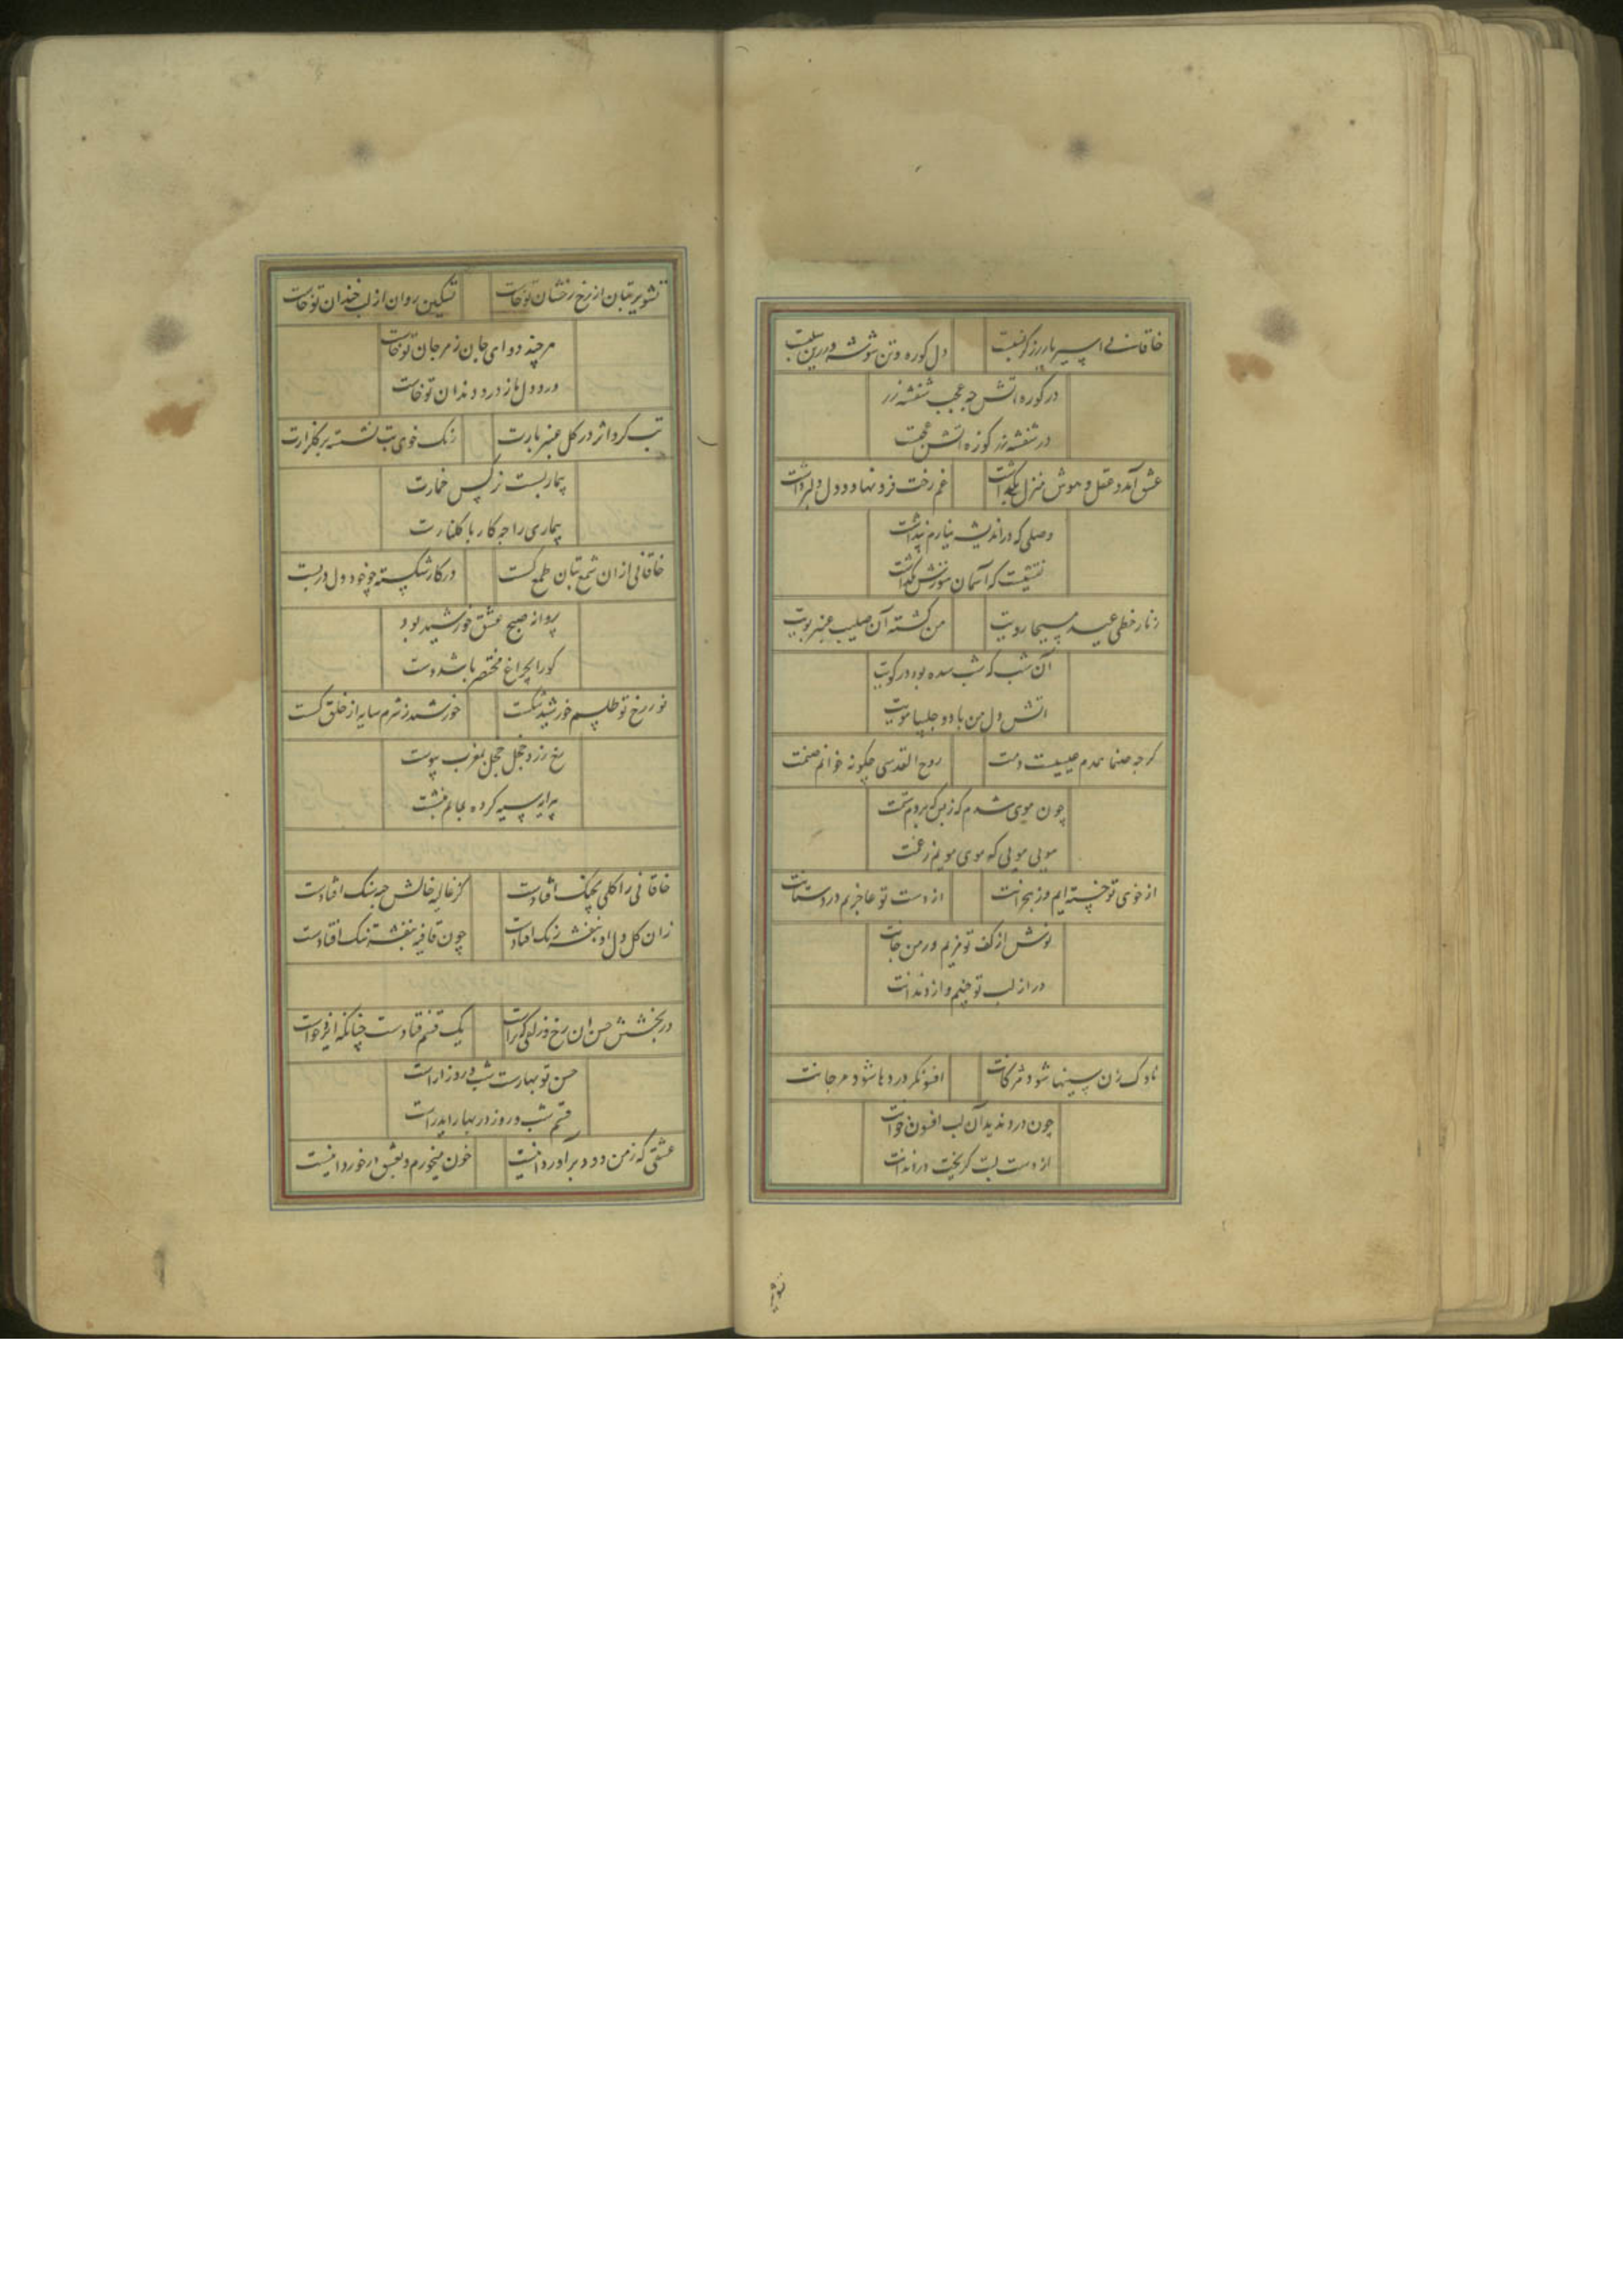 خاقانی اسیر یار زرگر نسبت دل کوره و تن شوشه زرین سلبت
در کوره آتش چه عجب شفشه زر
در شفشه زر کوره آتش عجبت
عشق آمد و عقل و هوش منزل بگذاشت غم رخت فرو نهاد و دل دل برداشت
وصلی که در اندیشه نیارم پنداشت
نقشیست که آسمان هنوزش ننگاشت
زنار خطی عید مسیحا رویت من کشته آن صلیب عنبر بویت
آن شب که شب سده بود در کویت
آتش دل من باد و چلیپا مویت
گرچه صنما همدم عیسیست دمت روح القدسی چگونه خوانم صنمت
چون موی شدم ز بس که بردم ستمت
مویی مویی که موی مویم ز غمت
از خوی تو خسته ایم و از هجرانت از دست تو عاجزیم و از دستانت
نوش از کف تو مزیم و از مرجانت
در از لب تو چنیم و از دندانت
ناوک زن سینها شود مژگانت افسونگر دردها شود مرجانت
چون درد ندید آن لب افسون خوانت
از دست لبت گریخت در دندانت
تشویر
تشویر بتان از رخ رخشان تو خاست تسکین روان از لب خندان تو خاست
هرچند دوای جان ز مرجان تو خاست
درد دل ما ز درد دندان تو خاست
تب کرد اثر در گل عنبر بارت زنگ خوی تب نشسته بر گلزارت
بیماریست نرگس خمارت
بیماری را چه کار با گلنارت
خاقانی از آن شمع بتان طمع گسست در کار شکسته چو خود دل در بست
پروانه صبح عشق خورشید بود
کورا بچراغ مختصر باشد دست
نور رخ تو طلسم خورشید شکست خورشید ز شرم سایه از خلق گسست
رخ زرد و خجل خجل بمغرب پیوست
پیرایه سیه کرده بماتم بنشست
خاقانی را گلی بچنگ افتادست کز غالیه خالش چه بسنگ افتادست
زان گل دل او بنفشه رنگ افتادست چون قافیه بنفشه تنگ افتادست
در بخشش حسن آن رخ و زلف کراست یک قسم فتادست چنانکه ایزد خواست
حسن تو بهارست و شب و روز آراست
قسم شب و روز در بهار آید راست
عشقی که ز من دود برآورد اینست خون میخورم و بعشق در خورد اینست